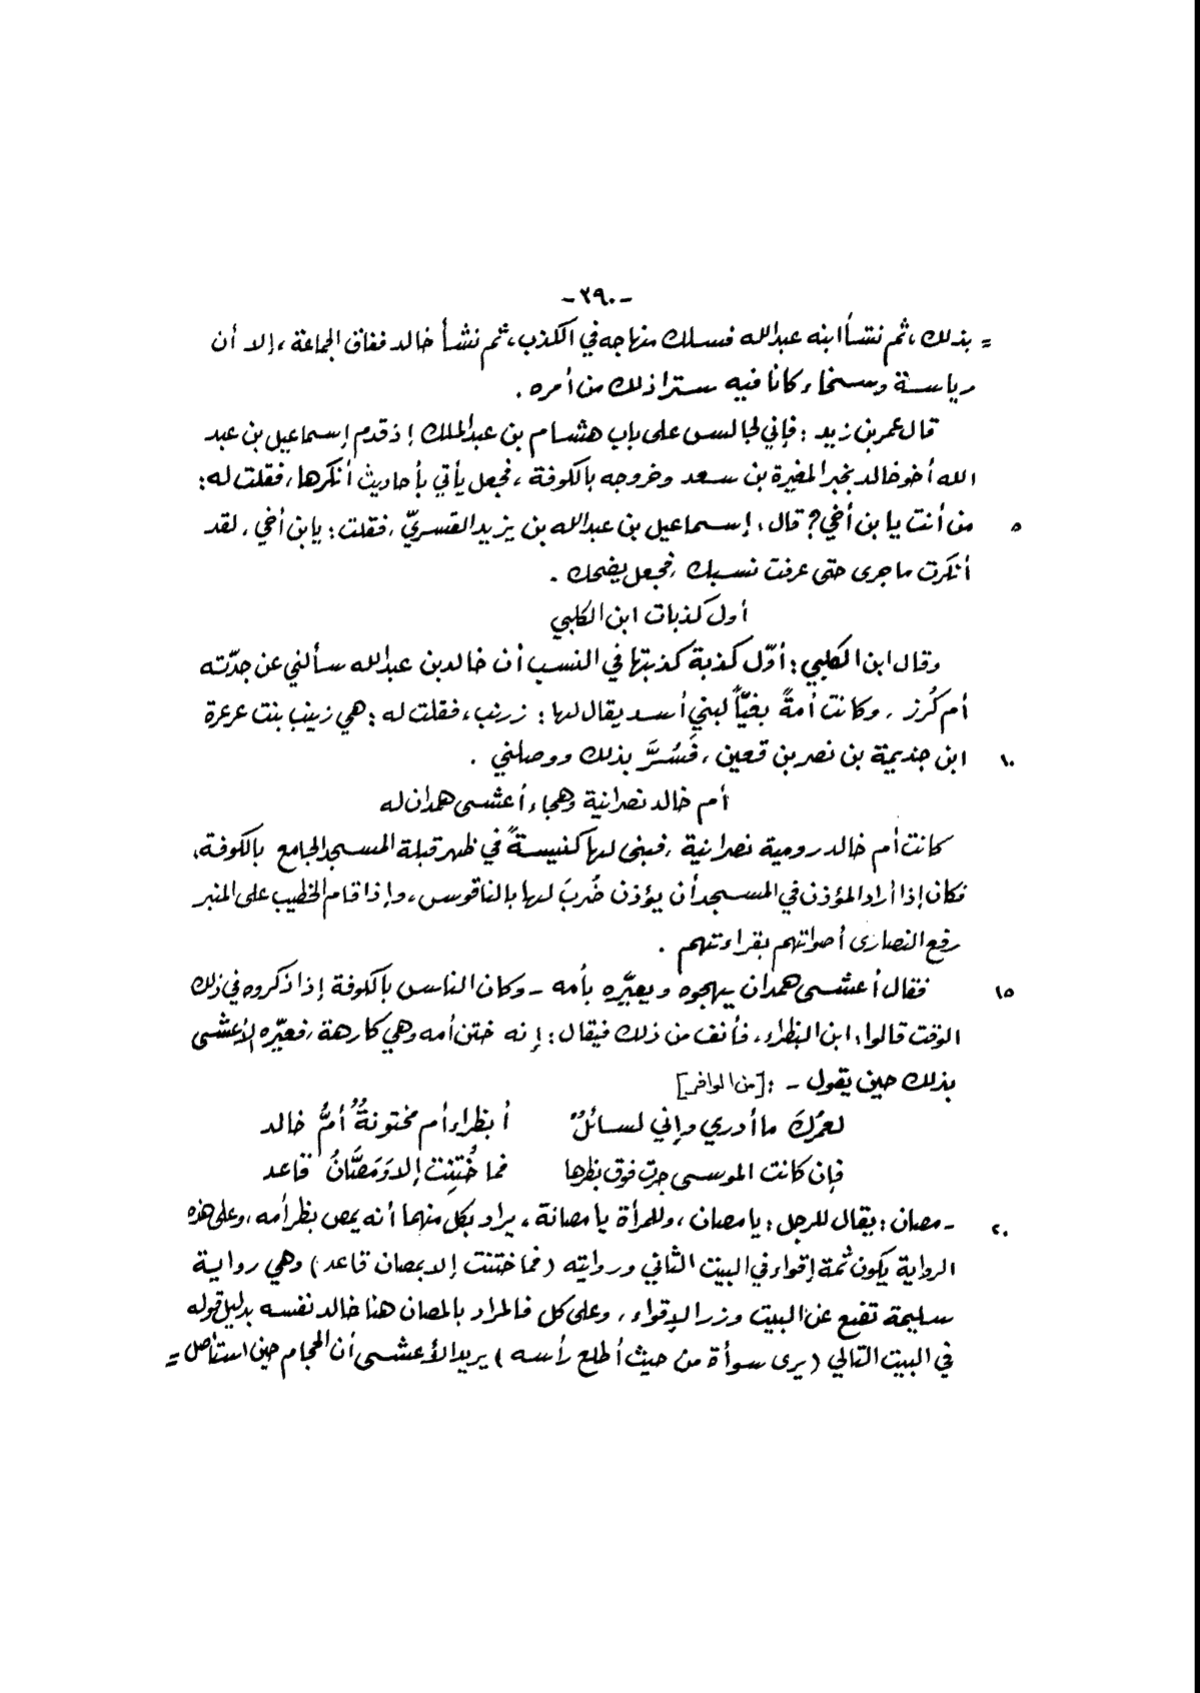 -٢٩٠-
= بذلك، ثم نشأ ابنه عبدالله فسلك منهاجه في الكذب، ثم نشأ خالد ففاق الجماعة، إلا أن
رياسة وسخاء كانا فيه سترا ذلك من أمره .
قال عمر بن زيد : فإني لجالس على باب هشام بن عبدالملك إذ قدم إسماعيل بن عبد
الله أخو خالد بخبر المغيرة بن سعد وخروجه بالكوفة ، فجعل يأتي بأحاديث أنكرها، فقلت له :
٥ من أنت يا بن أخي؟ قال : إسماعيل بن عبدالله بن يزيد القسريّ ، فقلت : يابن أخي ، لقد
أنكرت ما جرى حتى عرفت نسبك ، فجعل يضحك .
أول كذبات ابن الكلبي
وقال ابن الكلبي : أوّل كذبة كذبتها في النسب أن خالد بن عبدالله سألني عن جدّته
أم كُرز ، وكانت أمةً بغيّاً لبني أسد يقال لها : زرنب ، فقلت له : هي زينب بنت عرعرة
١٠ ابن جذيمة بن نصر بن قعين ، فَسُرَّ بذلك ووصلني .
أم خالد نصرانية وهجاء أعشى همدان له
كانت أم خالد رومية نصرانية ، فبنى لها كنيسةً في ظهر قبلة المسجد الجامع بالكوفة،
فكان إذا أراد المؤذن في المسجد أن يؤذن ضُربَ لها بالناقوس ، وإذا قام الخطيب على المنبر
رفع النصارى أصواتهم بقراءتهم .
١٥ فقال أعشى همدان يهجوه ويعيّره بأمه - وكان الناس بالكوفة إذا ذكروه في ذلك
الوقت قالوا: ابن البظراء ، فأنف من ذلك فيقال : إنه ختن أمه وهي كارهة ، فعيّره الأعشى
بذلك حين يقول - : [من الوافر]
لعمرُكَ ما أدري وإني لسائلٌ أبظراء أم مختونةٌ أمُّ خالد
فإن كانت الموسى جرت فوق بظرها فما خُتِنت إلا وَمَصَّانُ قاعد
٢٠ - مصان : يقال للرجل : يا مصان ، وللمرأة يا مصانة ، يراد بكل منهما أنه يمص بظر أمه ، وعلى هذه
الرواية يكون ثمة إقواء في البيت الثاني وروايته (فما ختنت إلا بمصان قاعد) وهي رواية
سليمة تضع عن البيت وزر الإقواء ، وعلى كل فالمراد بالمصان هنا خالد نفسه بدليل قوله
في البيت التالي (يرى سوأة من حيث أطلع رأسه) يريد الأعشى أن الحجام حين استأصل =